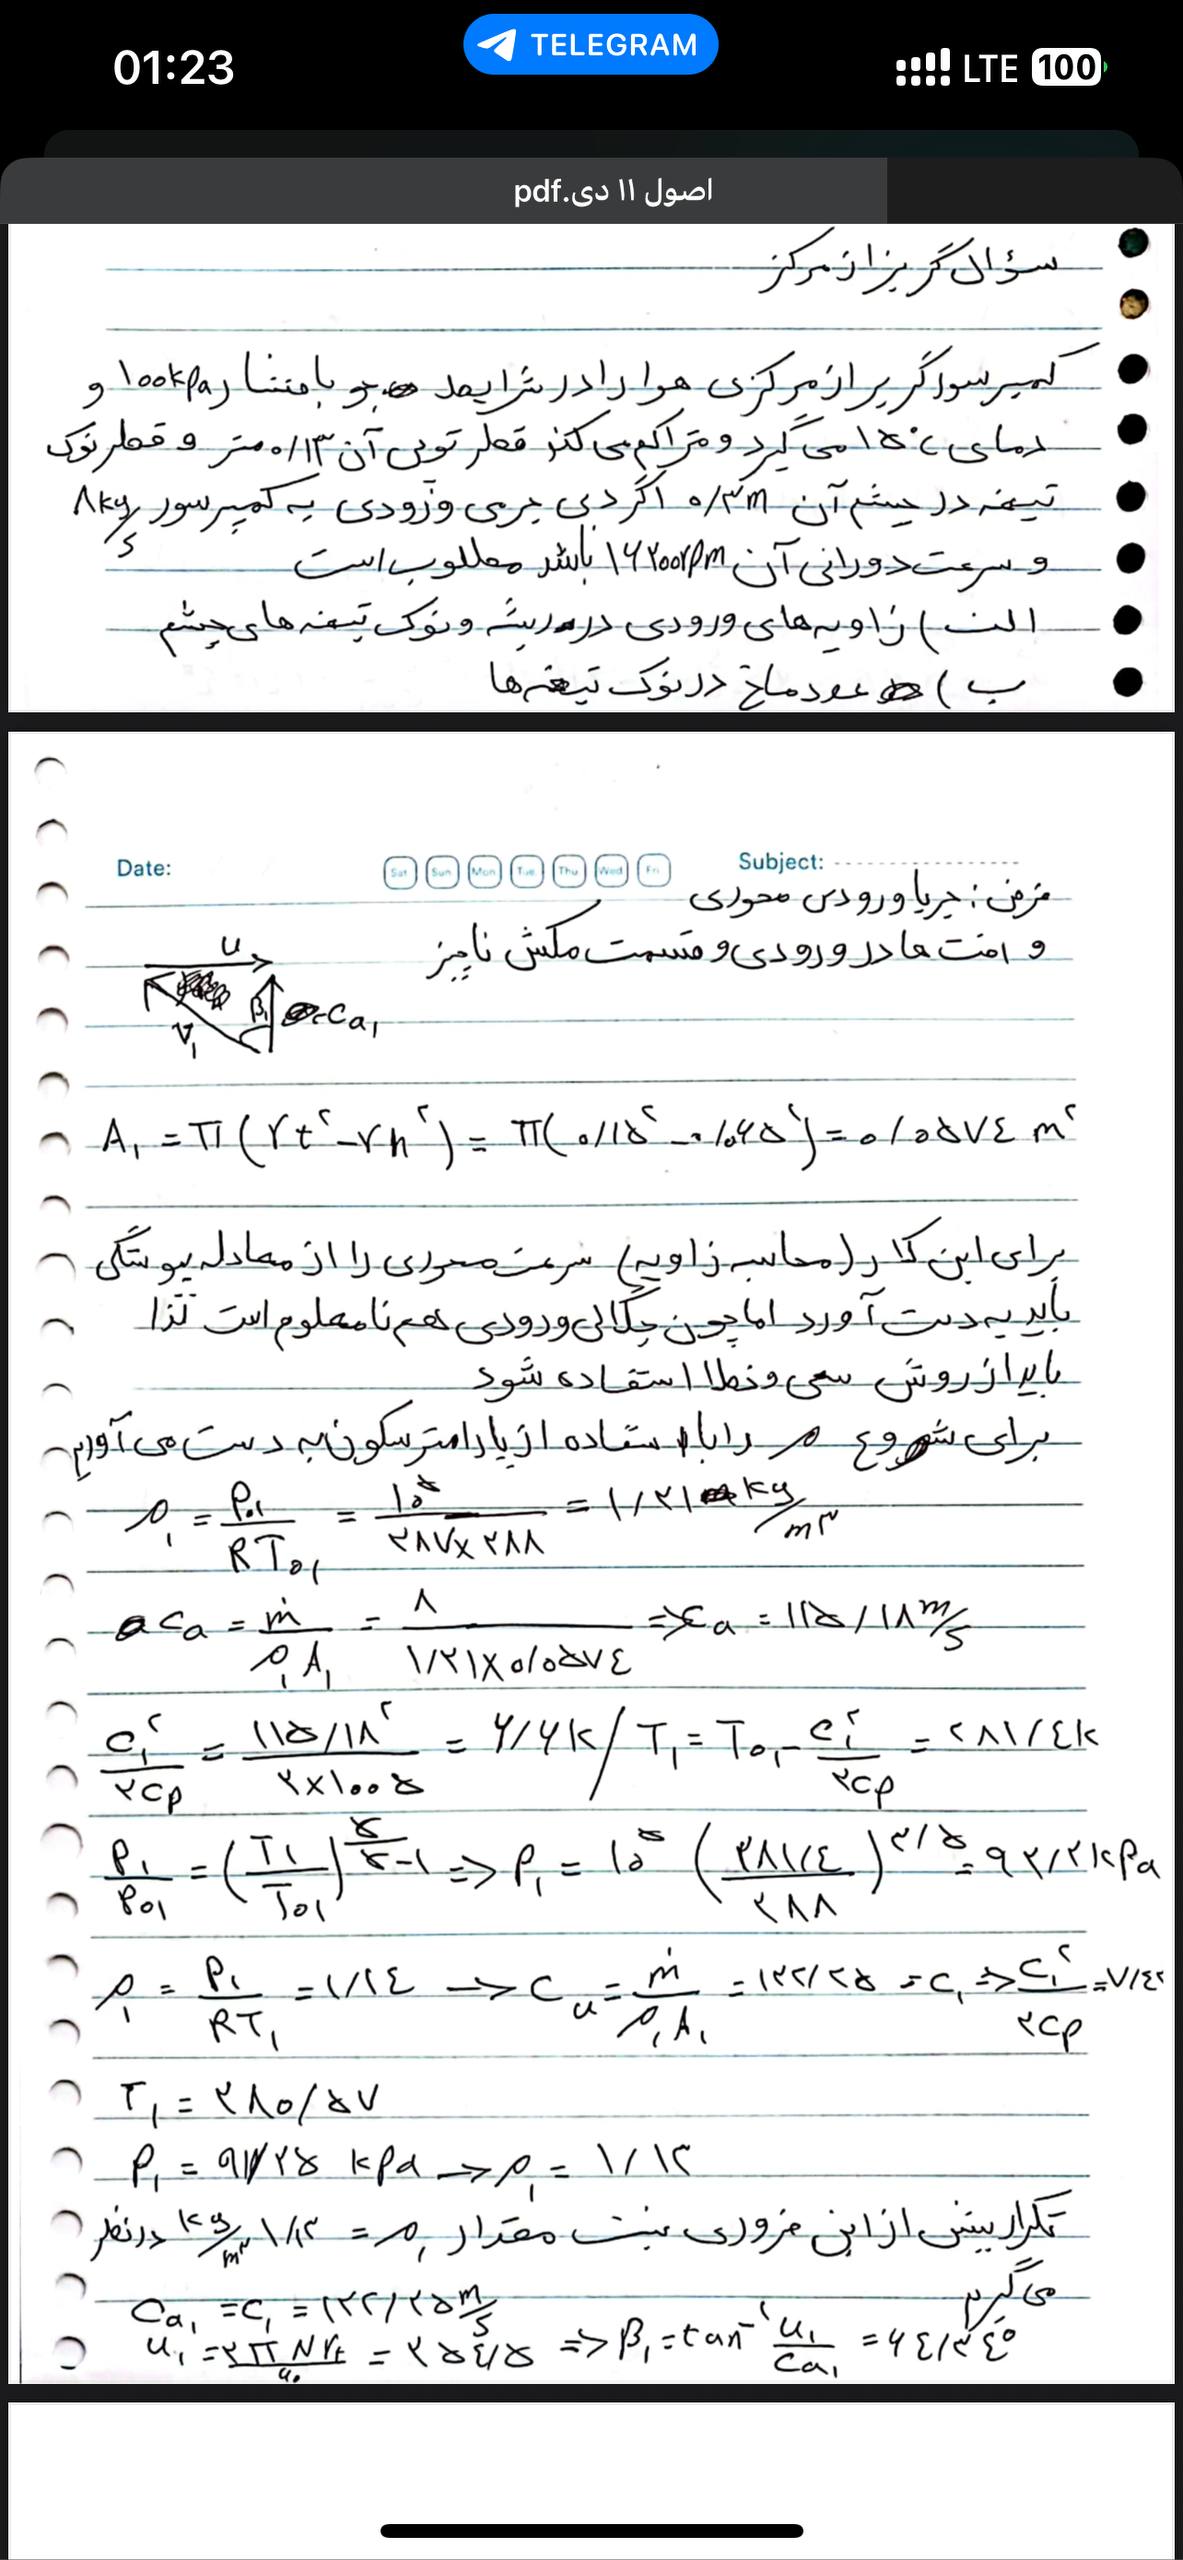 01:23
TELEGRAM
LTE 100
اصول ۱۱ دی.pdf
سؤال گریز از مرکز
کمپرسور گریز از مرکزی هوا را در شرایط جو با فشار 100kpa و
دمای ۱۵°c می گیرد و متراکم می کند قطر توپی آن ۰/۱۳ متر و قطر نوک
تیغه در چشم آن ۰/۳m اگر دبی جرمی ورودی به کمپرسور ۸kg/s
و سرعت دورانی آن ۱۶۲۰۰rpm باشد مطلوب است
الف) زاویه های ورودی در ریشه و نوک تیغه های چشم
ب) عدد ماخ در نوک تیغه ها
Date:
Sat Sun Mon Tue Thu Wed Fri
Subject:
فرض: جریا ورودی محوری
و افت ها در ورودی و قسمت مکش ناچیز
u
β₁ Ca₁
V₁
A₁ = π(rt² - rh²) = π(۰/۱۵² - ۰/۰۶۵²) = ۰/۰۵۷٤ m²
برای این کار (محاسبه زاویه) سرعت محوری را از معادله پیوستگی
باید به دست آورد اما چون چگالی ورودی هم نا معلوم است لذا
باید از روش سعی و خطا استفاده شود
برای شروع ρ را با استفاده از پارامتر سکون به دست می آوریم
ρ₁ = P₀₁/RT₀₁ = ۱۰⁵/۲۸۷×۲۸۸ = ۱/۲۱ kg/m³
Ca = ṁ/ρ₁A₁ = ۸/۱/۲۱×۰/۰۵۷٤ => Ca = ۱۱۵/۱۸ m/s
C₁²/۲Cp = ۱۱۵/۱۸²/۲×۱۰۰۵ = ۶/۶k / T₁ = T₀₁ - C₁²/۲Cp = ۲۸۱/٤k
P₁/P₀₁ = (T₁/T₀₁)^(γ/γ-1) => P₁ = ۱۰⁵ (۲۸۱/٤/۲۸۸)^۳/۵ = ۹۲/۲kPa
ρ₁ = P₁/RT₁ = ۱/۱٤ → Ca = ṁ/ρ₁A₁ = ۱۲۲/۲۵ = C₁ => C₁²/۲Cp = ۷/٤۳
T₁ = ۲۸۰/۵۷
P₁ = ۹۱/۲۵ kPa → ρ₁ = ۱/۱۳
تکرار بیش از این ضروری نیست مقدار ρ₁ = ۱/۱۳ kg/m³ درنظر
می گیریم
Ca₁ = C₁ = ۱۲۲/۲۵ m/s
u₁ = ۲πNrt/۶۰ = ۲۵٤/۵ => β₁ = tan⁻¹ u₁/Ca₁ = ۶٤/۳٤°